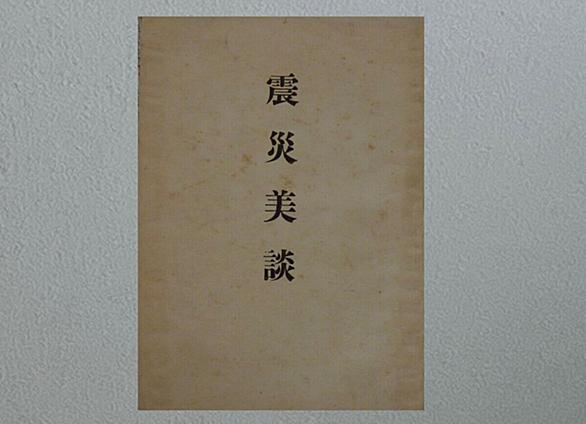 震災美談